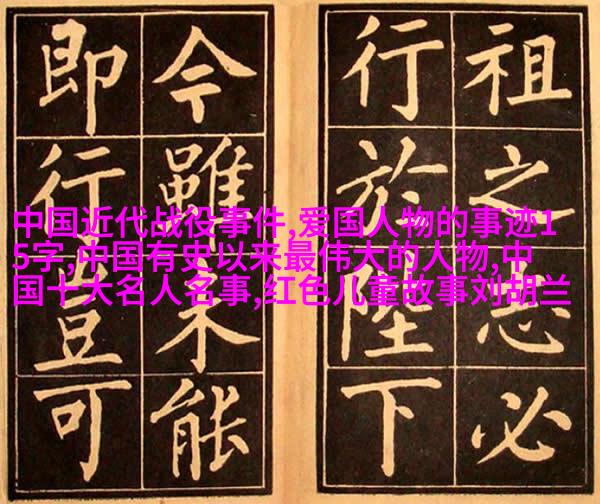 祖之志必
行於陛下
今雖未能
即行豈可
中国近代战役事件,爱国人物的事迹1
5字,中国有史以来最伟大的人物,中
国十大名人名事,红色儿童故事刘胡兰